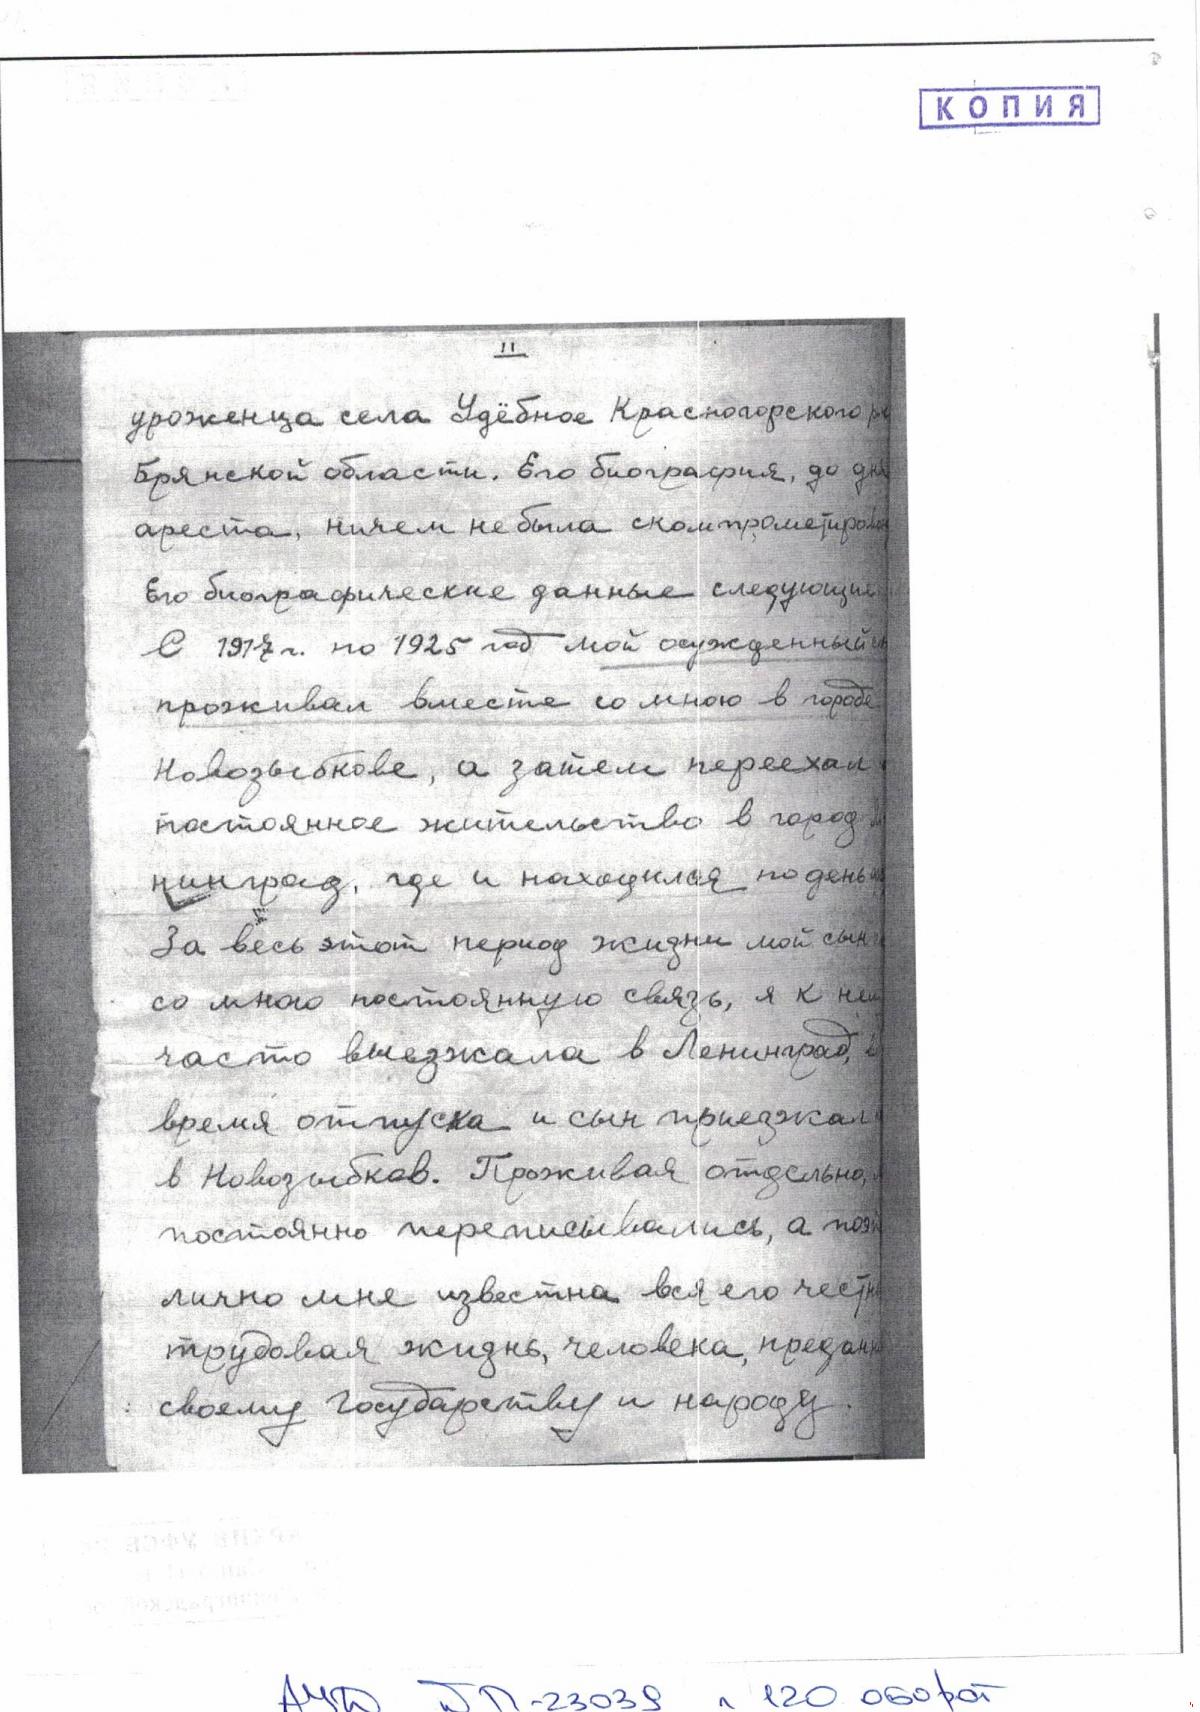 КОПИЯ
11
уроженца села Удёбное Красногорского
Брянской области. Его биография, до дня
ареста, ничем не была скомпрометирован
Его биографические данные следующие
С 1917 г. по 1925 год мой осужденный
проживал вместе со мною в городе
Новозыбкове, а затем переехал
постоянное жительство в город
нинград, где и находился по день
За весь этот период жизни мой сын
со мною постоянную связь, я к нему
часто выезжала в Ленинград, в
время отпуска и сын приезжал
в Новозыбков. Проживая отдельно,
постоянно переписывались, а поэт
лично мне известна вся его честн
трудовая жизнь, человека, преданн
своему Государству и народу.
АУД П-23039 л 120 оборот